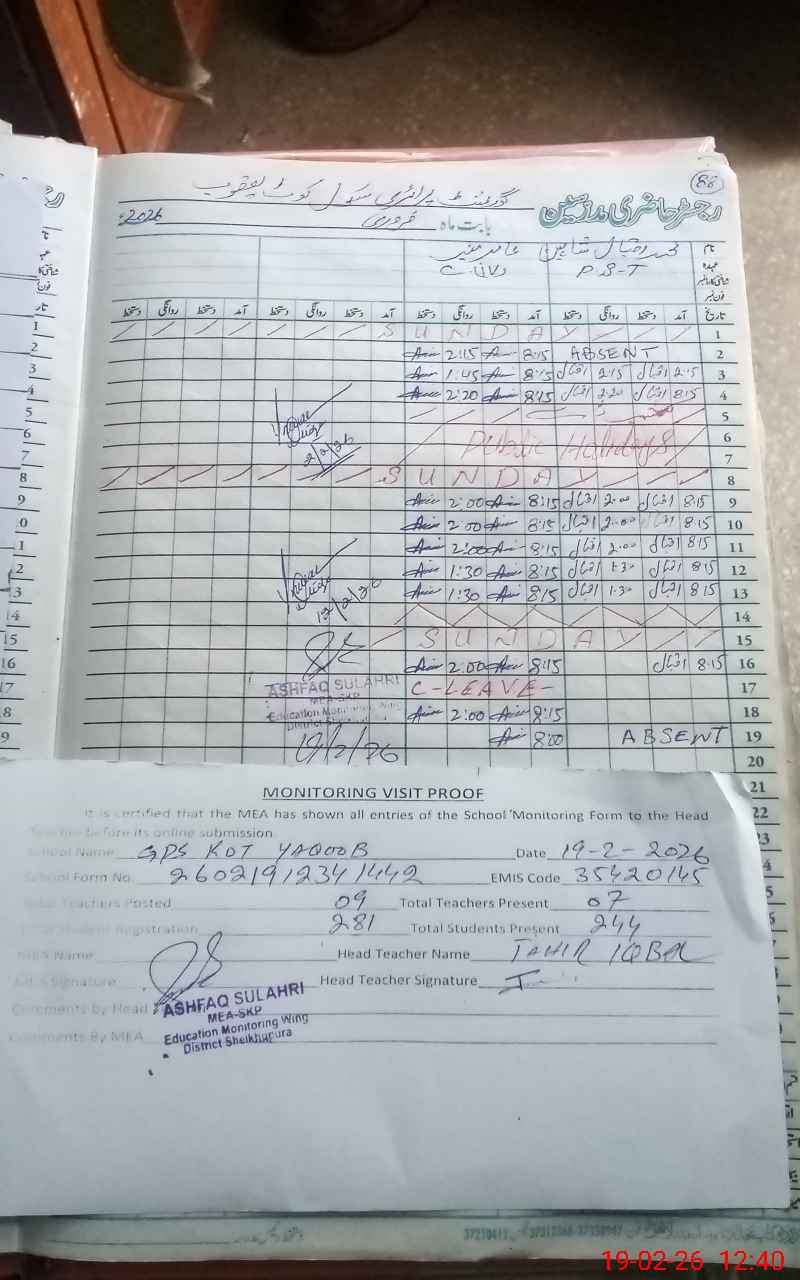 88
رجسٹر حاضری مدرسین گورنمنٹ پرائمری سکول کوٹ یعقوب
بابت ماہ فروری 2026ء
نام محمد اقبال شاہین عامر منیر
عہدہ P.S-T
شناختی کارڈ نمبر
فون نمبر
تاریخ آمد دستخط روانگی دستخط آمد دستخط روانگی دستخط آمد دستخط روانگی دستخط آمد دستخط روانگی دستخط
1 SUNDAY
2 ABSENT 8:15 2:15
3 2:15 اقبال 2:15 اقبال 8:15 1:45
4 8:15 اقبال 2:20 اقبال 8:15 2:20
5
6 Public Holidays
7
2/2/26
8 SUNDAY
9 8:15 اقبال 2:00 اقبال 8:15 2:00
10 8:15 اقبال 2:00 اقبال 8:15 2:00
11 8:15 اقبال 2:00 اقبال 8:15 2:00
12 8:15 اقبال 1:30 اقبال 8:15 1:30
13 8:15 اقبال 1:30 اقبال 8:15 1:30
12/2/26
14
15 SUNDAY
16 8:15 اقبال 8:15 2:00
17 C-LEAVE-
18 8:15 2:00
19 ABSENT 8:00
ASHFAQ SULAHRI
MEA-SKP
Education Monitoring Wing
District Sheikhupura
19/2/26
20
21
22
MONITORING VISIT PROOF
It is certified that the MEA has shown all entries of the School Monitoring Form to the Head
Teacher before its online submission.
School Name GPS KOT YAQOOB Date 19-2-2026
School Form No. 26021912341442 EMIS Code 35420145
Total Teachers Posted 09 Total Teachers Present 07
Total Student Registration 281 Total Students Present 244
MEA Name Head Teacher Name TAHIR IQBAL
MEA Signature Head Teacher Signature
Comments by Head
Comments By MEA
ASHFAQ SULAHRI
MEA-SKP
Education Monitoring Wing
District Sheikhupura
19-02-26 12:40